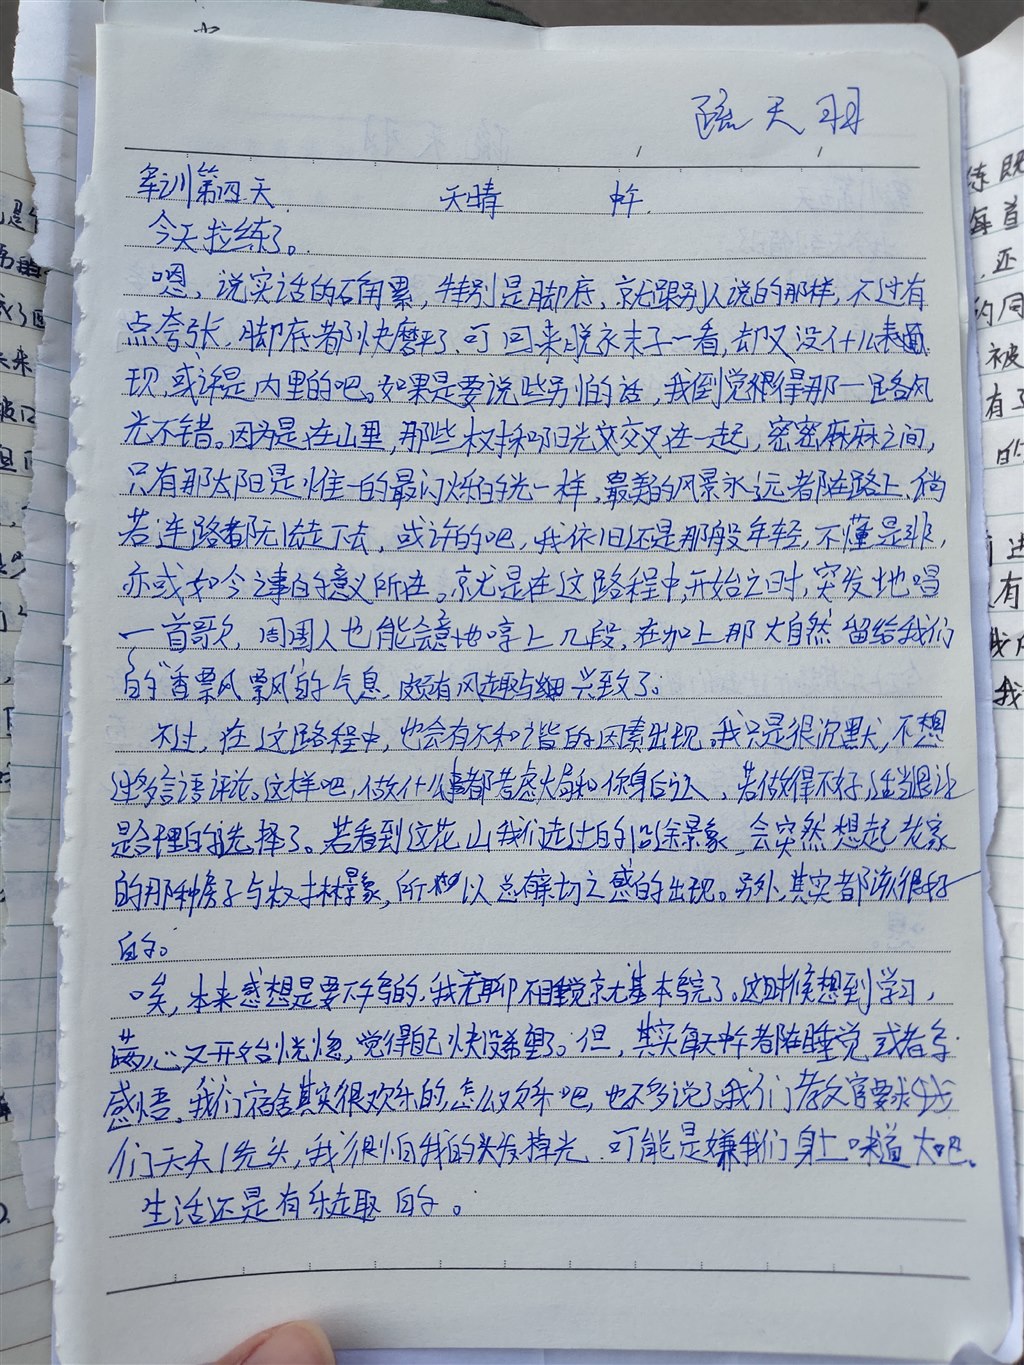 天羽
军训第四天 天晴 中午
今天拉练了。
嗯，说实话的确累，特别是脚底，就跟别人说的那样，不过有
点夸张，脚底都快磨平了，可回来脱衣末子一看，却又没什么表
现，或许是内里的吧。如果是要说些另怕的话，我倒觉得那一路风
光不错。因为是在山里，那些权林和阳光交叉在一起，密密麻麻之间，
只有那太阳是唯一的最闪烁的光一样，最美的风景永远都在路上，倘
若连路都无法走下去，或许的吧，我依旧还是那般年轻，不懂是非，
亦或如今之事的意义所在。就是在这路程中，开始之时，突发地唱
一首歌，周围人也能会意地哼上几段，在加上那大自然留给我们
的“香飘飘”的气息，颇有风趣与兴致了。
不过，在这路程中，也会有不和谐的因素出现，我只是很沉默，不想
过多言语评论。这样吧，做什么事都考虑大局和你身后人，若做得不好，适当退让
是合理的选择了。若看到这花山我们走过的沿途景象，会突然想起老家
的那种房子与权林景象，所以总有亲切之感的出现。另外，其实都该很好
的。
唉，本来感想是要下午写的，我无聊不睡觉就基本写完了。这时候想到学习，
心又开始恍惚，觉得自己快没希望了。但，其实每天中午都在睡觉或者写
感悟。我们宿舍其实很欢乐的，怎么欢乐吧，也不多说了。我们教官要求我
们天天洗头，我很怕我的头发掉光，可能是嫌我们身上味道大吧。
生活还是有乐趣的。